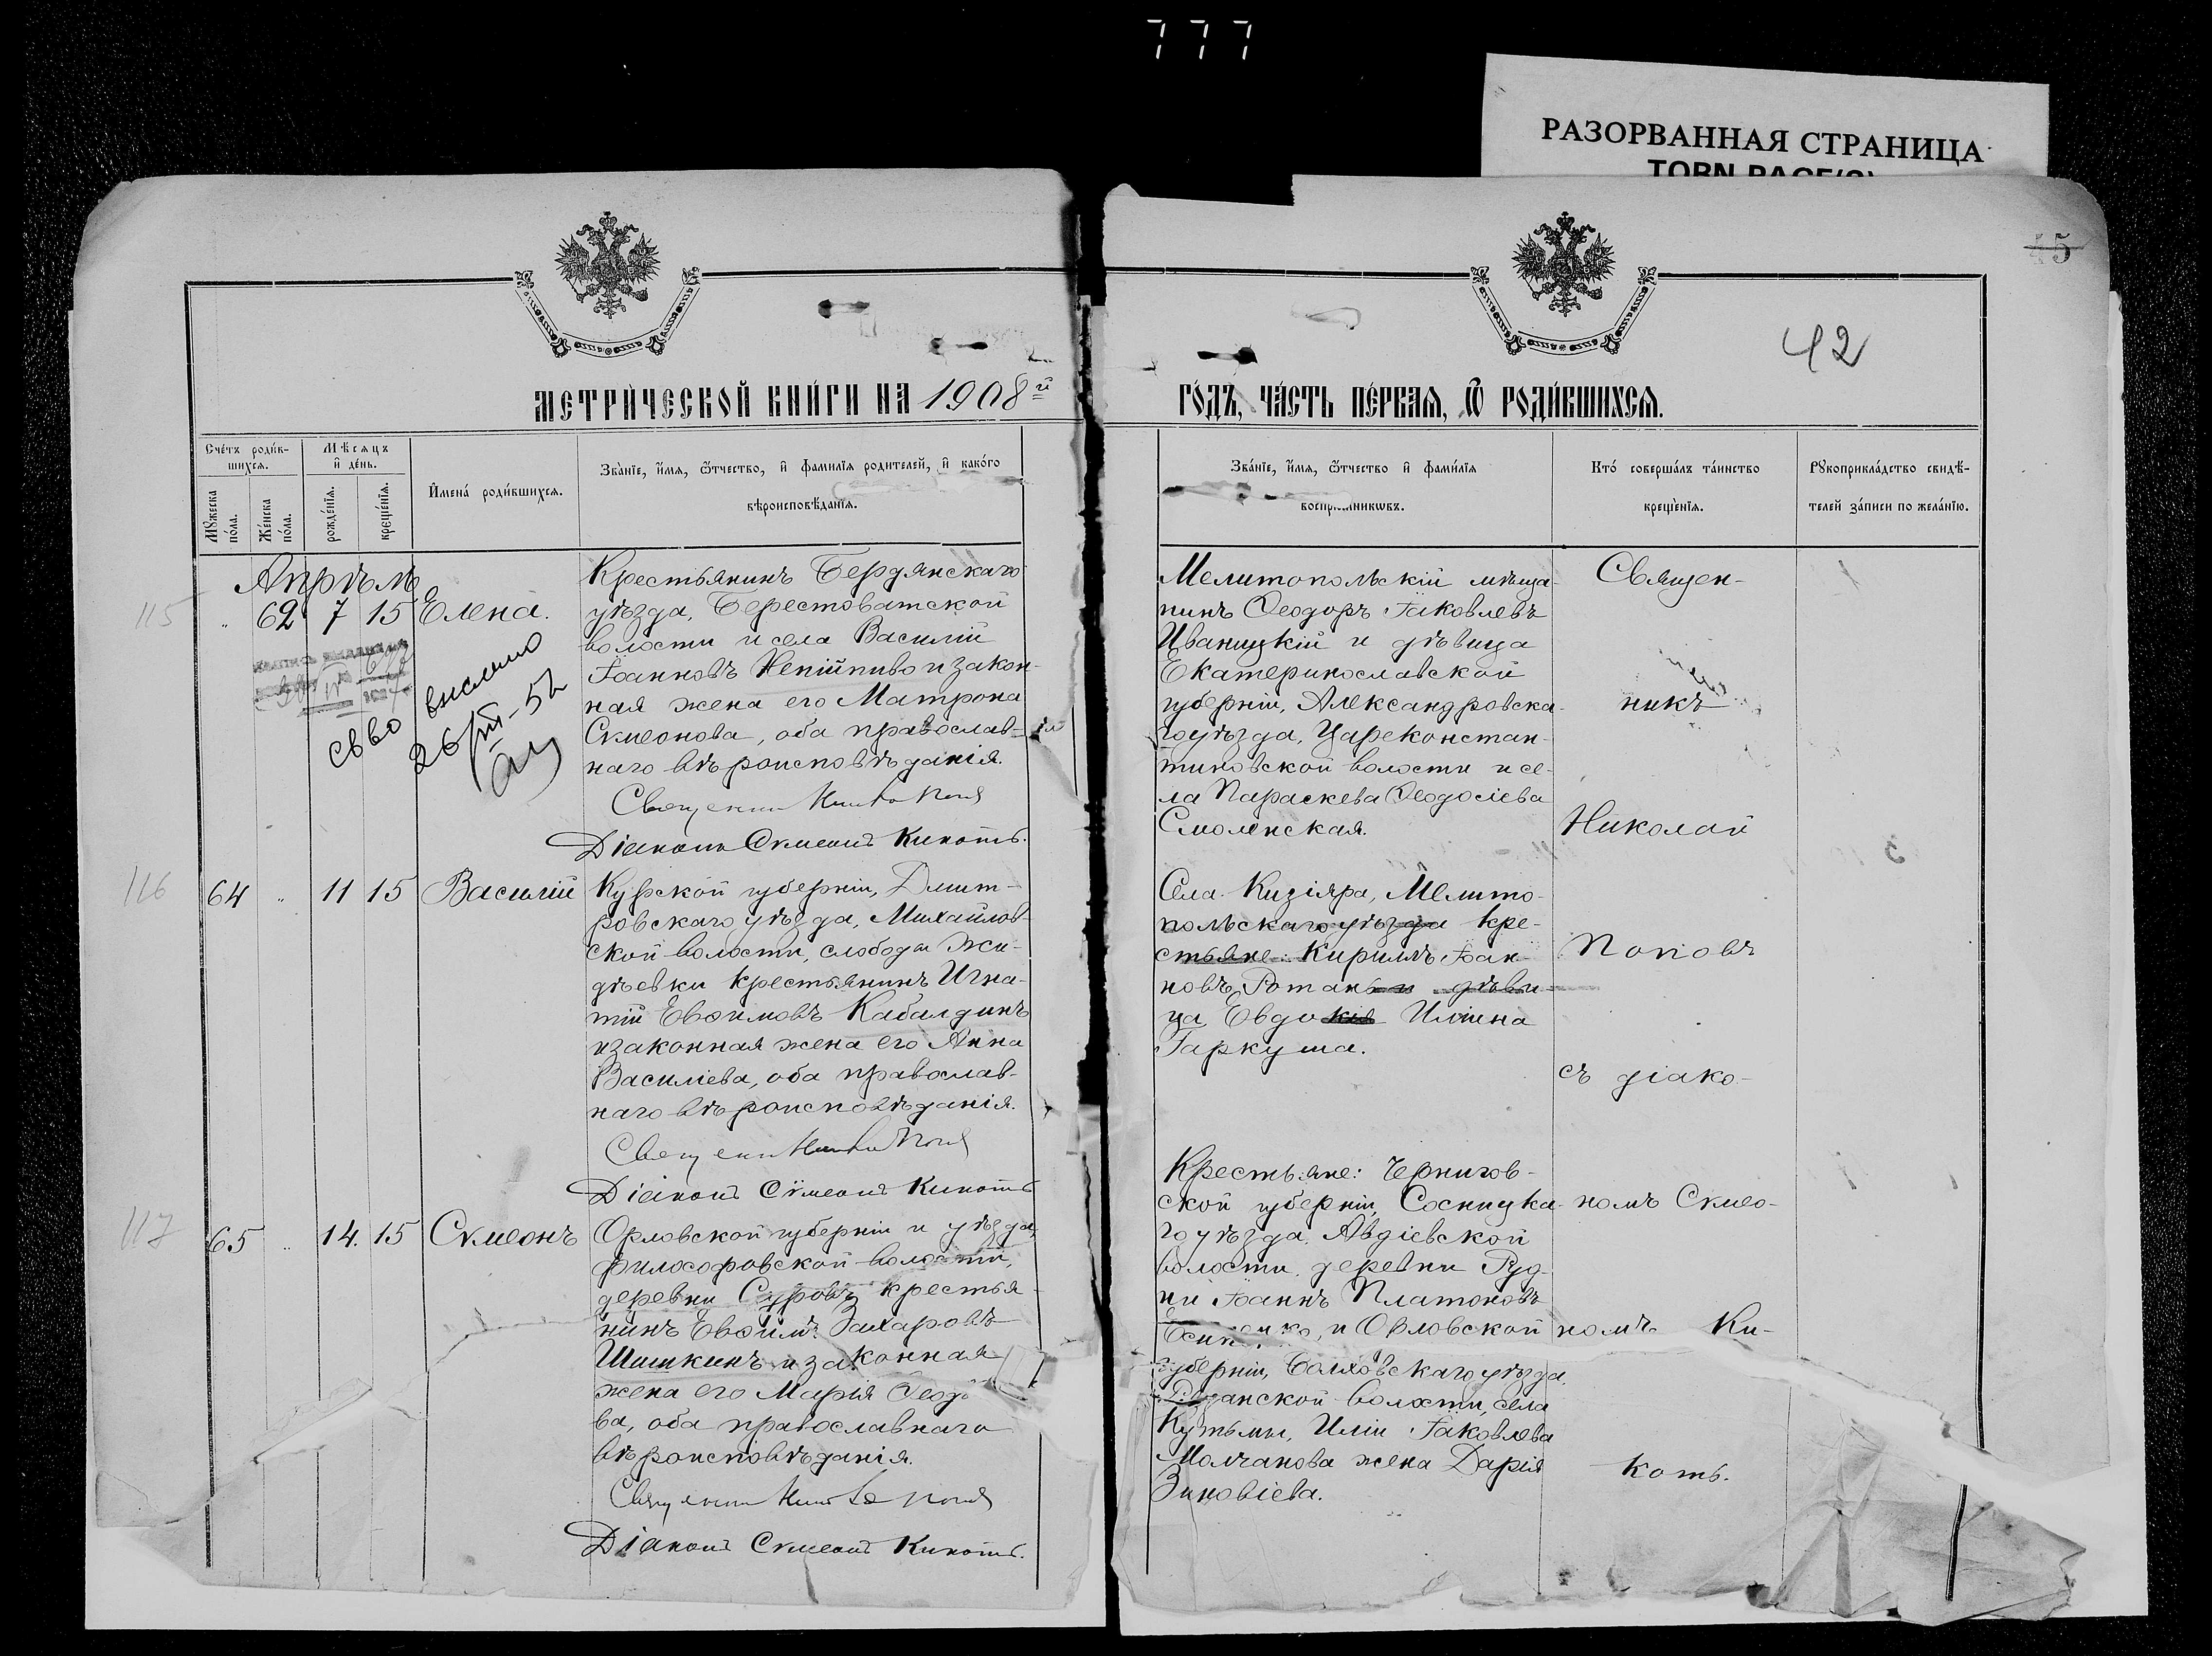 777
РАЗОРВАННАЯ СТРАНИЦА
TORN PAGE(S)
45
42
МЕТРИ́ЧЕСКОЙ КНИ́ГИ НА 1908й
ГО́ДЪ, ЧА́СТЬ ПЕ́РВАЯ, Ѿ РОДИ́ВШИХСЯ.
Сче́тъ роди́в-
шихся.
Мѣ́сяцъ
и҆ де́нь.
Мꙋ́жеска по́ла.
Же́нска по́ла.
рожде́нїя.
креще́нїя.
И҆мена́ роди́вшихся.
Зва́нїе, и҆́мя, ѻ҆́тчество, и҆ фами́лїя родителей, и҆ како́го
вѣроисповѣ́данїя.
Зва́нїе, и҆́мя, ѻ҆́тчество и҆ фами́лїя
Кто̀ соверша́лъ та́инство
креще́нїя.
Рꙋкоприкла́дство свидѣ́-
телей за́писи по жела́нїю.
Апрѣль
115 „ 62 7 15 Елена.
Крестьянинъ Бердянскаго
уѣзда, Берестоватской
волости и села Василій
Іоанновъ Непійпиво и закон-
ная жена его Матрона
Сѵмеонова, оба православ-
наго вѣроисповѣданія.
Священник
Діаконъ Сѵмеонъ Кикоть.
св во выслано
26/III-52
Мелитопольскій мѣща-
нинъ Ѳеодоръ Іаковлевъ
Иваницкій и дѣвица
Екатеринославской
губерніи, Александровска-
го уѣзда, Цареконстан-
тиновской волости и се-
ла Параскева Ѳеодосіева
Смоленская.
Священ-
никъ
Николай
116 64 „ 11 15 Василій
Курской губерніи, Дмит-
ровскаго уѣзда, Михайлов-
ской волости, слободы Жи-
дѣевки крестьянинъ Игна-
тій Евѳимовъ Кабалдинъ
и законная жена его Анна
Василіева, оба православ-
наго вѣроисповѣданія.
Священник
Діаконъ Сѵмеонъ Кикоть
Села Кизіяра, Мелито-
польскаго уѣзда кре-
стьяне: Кириллъ Іоан-
новъ Ротань и дѣви-
ца Евдокія Иліина
Гаркуша.
Поповъ
съ діако-
117 65 „ 14. 15 Сѵмеонъ
Орловской губерніи и уѣзда,
философовской волости,
деревни крестья-
нинъ Евѳимъ Захаровъ
Шишкинъ и законная
жена его Марія
ва, оба православнаго
вѣроисповѣданія.
Священник
Діаконъ Сѵмеонъ Кикоть.
Крестьяне: Чернигов-
ской губерніи, Сосницка-
го уѣзда, Авдіевской
волости, деревни Руд-
ни Іоаннъ Платоновъ
и Орловской
губерніи, Болховскаго уѣзда,
волости, села
Кутьмы, Иліи Іаковлева
Молчанова жена Дарія
Зиновіева.
номъ Сѵмео-
номъ Ки-
коть.